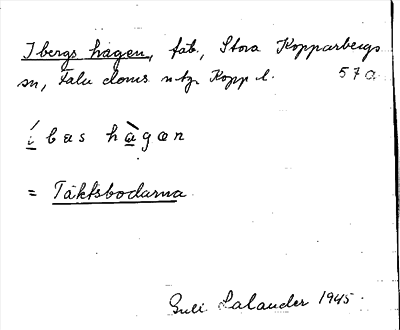 Ibergs hagen, fäb., Stora Kopparbergs
sn, Falu doms
Kopp l. 57a
i bas hagan
= Täktsbodarna
Salander 1945